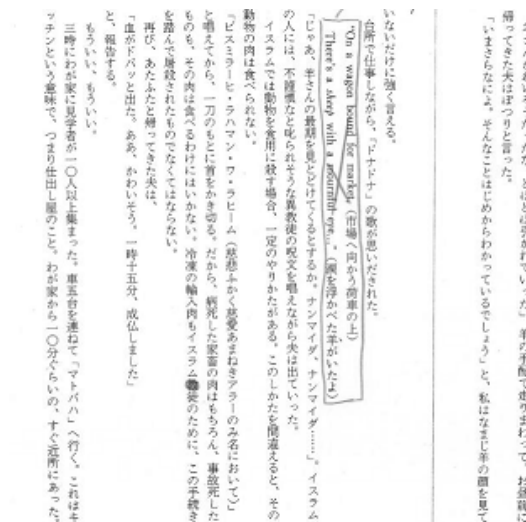 帰ってきた夫はぽつりと言った。
「いまさらなによ。そんなことはじめからわかっているでしょう」と、私はなまじ羊の顔を見て
いないだけに強く言える。
台所で仕事しながら、「ドナドナ」の歌が思いだされた。
"On a wagon bound for market, (市場へ向かう荷車の上)
There's a sheep with a mournful eye…"(涙を浮かべた羊がいたよ)
「じゃあ、羊さんの最期を見とどけてくるとするか。ナンマイダ、ナンマイダ……」。イスラム
の人には、不謹慎なと叱られそうな異教徒の呪文を唱えながら夫は出ていった。
イスラムでは動物を食用に殺す場合、一定のやりかたがある。このしかたを間違えると、その
動物の肉は食べられない。
「ビスミラーヒ・ラハマン・ワ・ラヒーム(慈悲ふかく慈愛あまねきアラーのみ名において)」
と唱えてから、一刀のもとに首をかき切る。だから、病死した家畜の肉はもちろん、事故死した
ものも、その肉は食べるわけにはいかない。冷凍の輸入肉もイスラム教徒のために、この手続き
を踏んで屠殺されたものでなくてはならない。
再び、あたふたと帰ってきた夫は、
「血がドバッと出た。ああ、かわいそう。一時十五分、成仏しました」
と、報告する。
もういい、もういい。
三時にわが家に見学者が一〇人以上集まった。車五台を連ねて「マトバハ」へ行く。これはキ
ッチンという意味で、つまり仕出し屋のこと。わが家から一〇分ぐらいの、すぐ近所にあった。